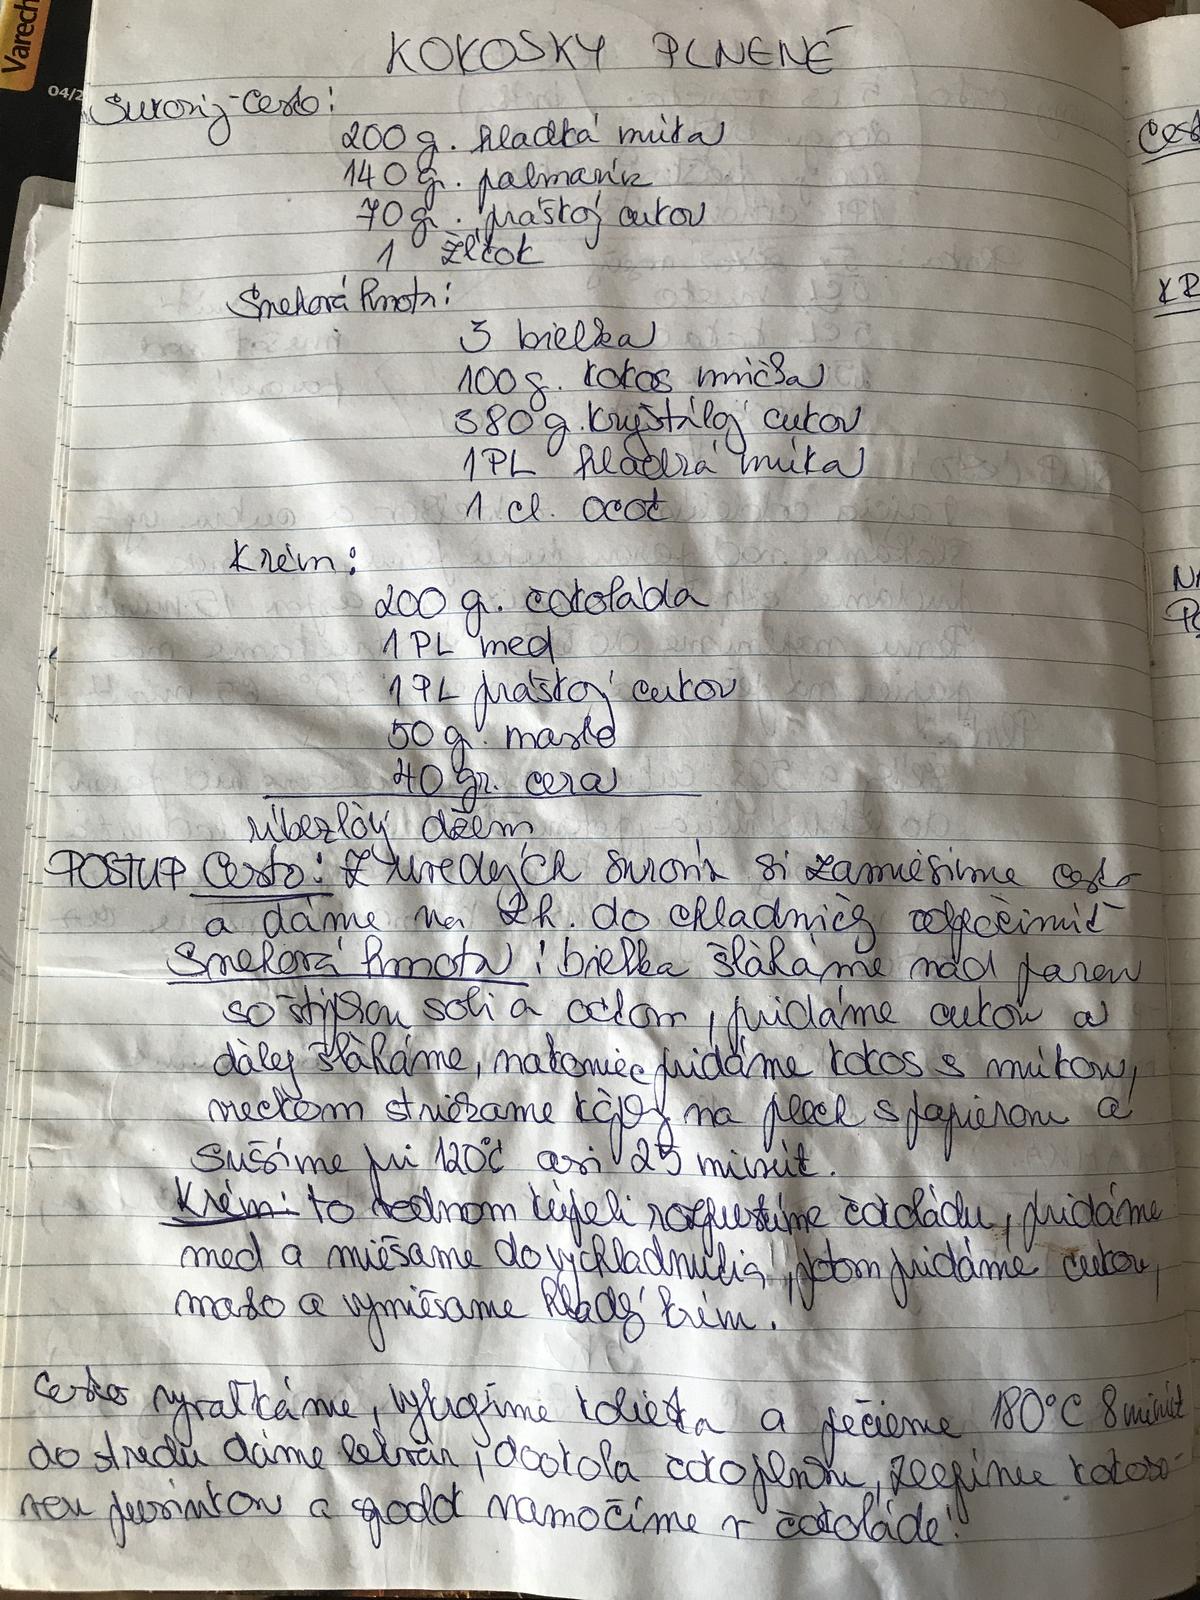 Varech
04/2
KOKOSKY PLNENÉ
Suroviny-Cesto:
200 g. hladká múka
140 g. palmarín
70 gr. práškový cukor
1 žĺtok
Snehová hmota:
3 bielka
100 g. kokos múčka
380 g. kryštálový cukor
1 PL hladká múka
1 čl. ocot
Krém:
200 g. čokoláda
1 PL med
1 PL práškový cukor
50 g. maslo
40 gr. cera
ríbezlový džem
POSTUP Cesto: Z uvedených surovín si zamiesime cesto
a dáme na 2h. do chladničky odpočinúť
Snehová hmota: bielka šľaháme nad parou
so štipkou soli a octom, pridáme cukor a
ďalej šľaháme, nakoniec pridáme kokos s múkou,
vreckom striekame kôpky na plech s papierom a
sušíme pri 120°C asi 25 minút.
Krém: vo vodnom kúpeli rozpustíme čokoládu, pridáme
med a miešame do vychladnutia, potom pridáme cukor,
maslo a vymiešame hladký krém.
Cesto vyvaľkáme, vykrojíme kolieska a pečieme 180°C 8 minút
do stredu dáme lekvár, dookola čoko plnkou, zlepíme kokoso-
vou pusinkou a spodok namočíme v čokoláde!
Cest
KR
NA
Po